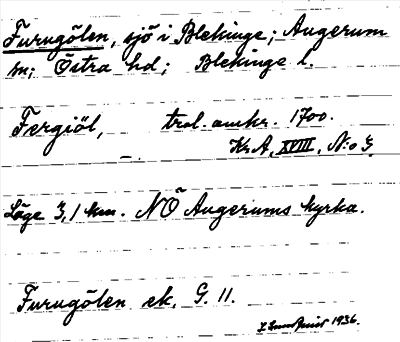 Furugölen, sjö i Blekinge; Augerum
sn; Östra hd; Blekinge l.
Fergiöl, trol. omkr. 1700.
Kr A, XVIII, N:o 3.
Läge 3,1 km. NÖ Augerums kyrka.
Furugölen ek. G. 11.
1936.